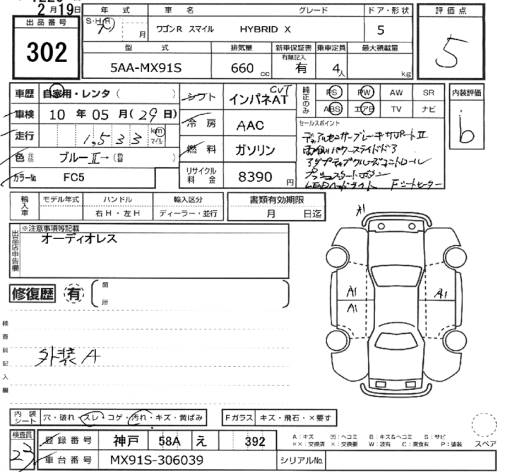 2月19日
出品番号
302
年式 車名 グレード ドア・形状
S・H・R 7 月 ワゴンR スマイル HYBRID X 5
型式 排気量 新車保証書 有無記入 乗車定員 最大積載量
5AA-MX91S 660 cc 有 4人 kg
評価点
5
車歴 自家用・レンタ
車検 10年05月(29日)
走行 1,533 km マイル
色 ブルーⅡ→(
カラーNo FC5
シフト インパネAT CVT
冷房 AAC
燃料 ガソリン
リサイクル料金 8390 円
純正のみ PS PW AW SR
ABS エアB TV ナビ
セールスポイント
デュアルセンサーブレーキサポートⅡ
両側パワースライドドア
アダプティブクルーズコントロール
プッシュスタート
LEDヘッドライト Fシートヒーター
内装評価
b
輸入車 モデル年式 ハンドル 輸入区分
右H・左H ディーラー・並行
書類有効期限
月 日迄
出品店申告欄
※注意事項等記載
オーディオレス
修復歴 有
箇所
検査員記入欄
外装A
A1
A1
A1
A1
内装シート 穴・破れ・スレ・コゲ・汚れ・キズ・黄ばみ
Fガラス キズ・飛石・×要す
検査員
23
登録番号 神戸 58A え 392
車台番号 MX91S-306039
シリアルNo.
A:キズ
B:キズ&ヘコミ
S:サビ
スペア
××:交換済
X:交換要
W:波有
C:腐食有
P:塗装